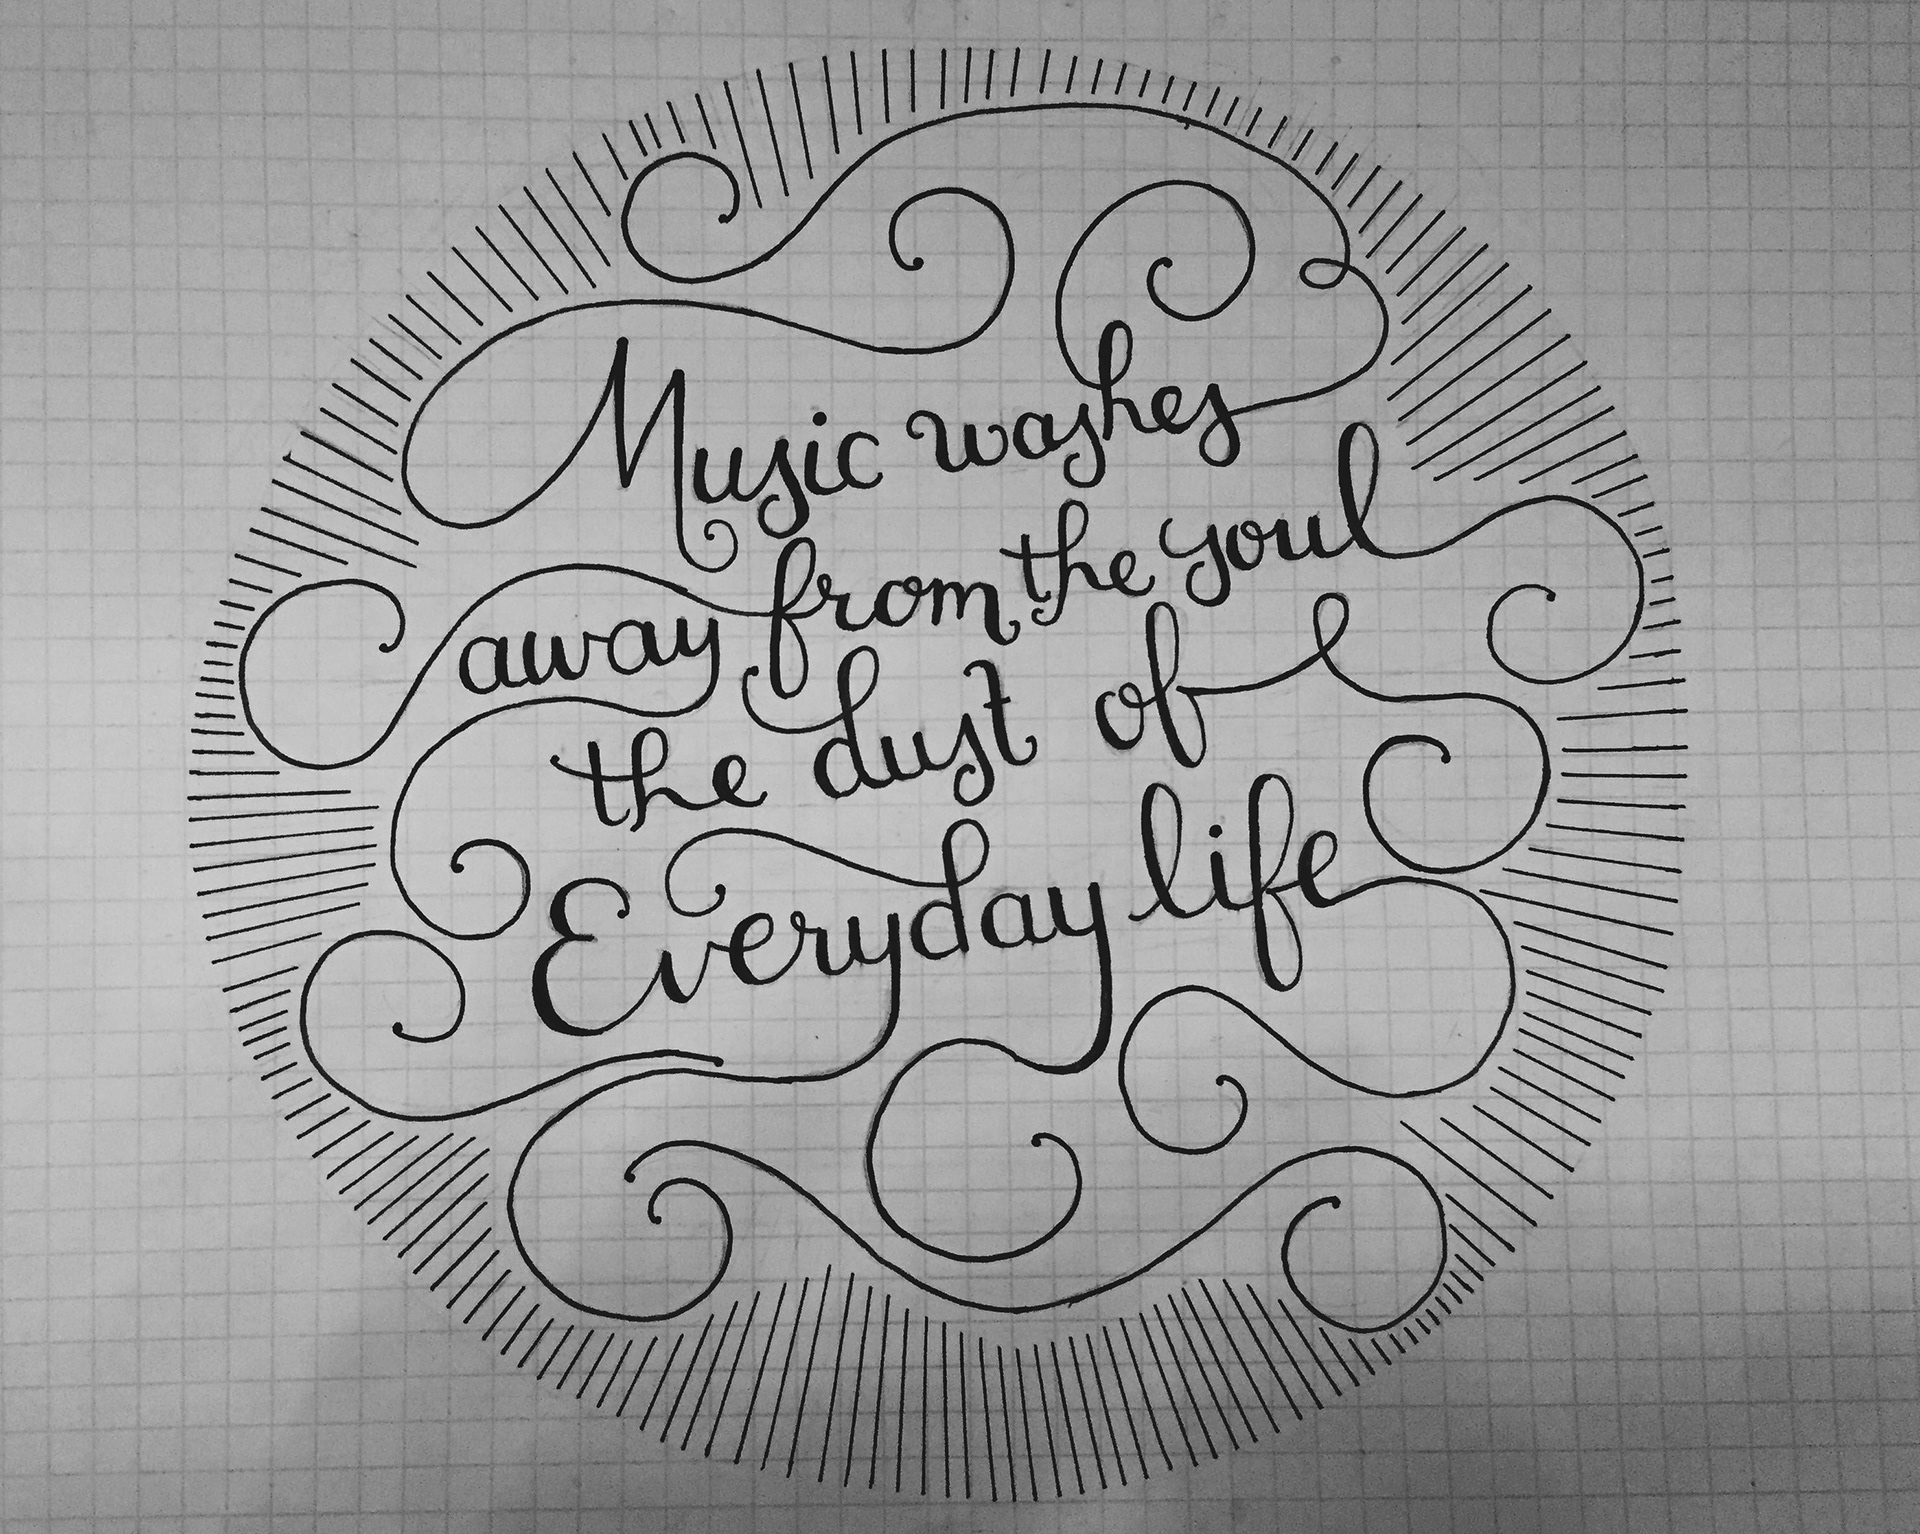 Music washes
away from the soul
the dust of
Everyday life